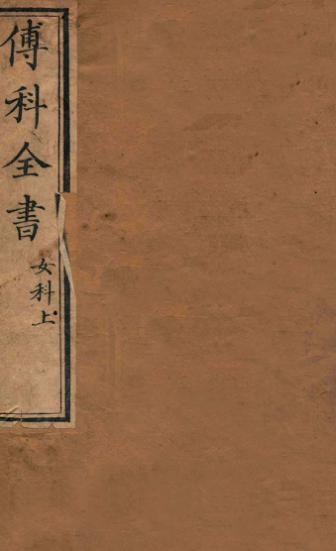 傅科全書
女科上